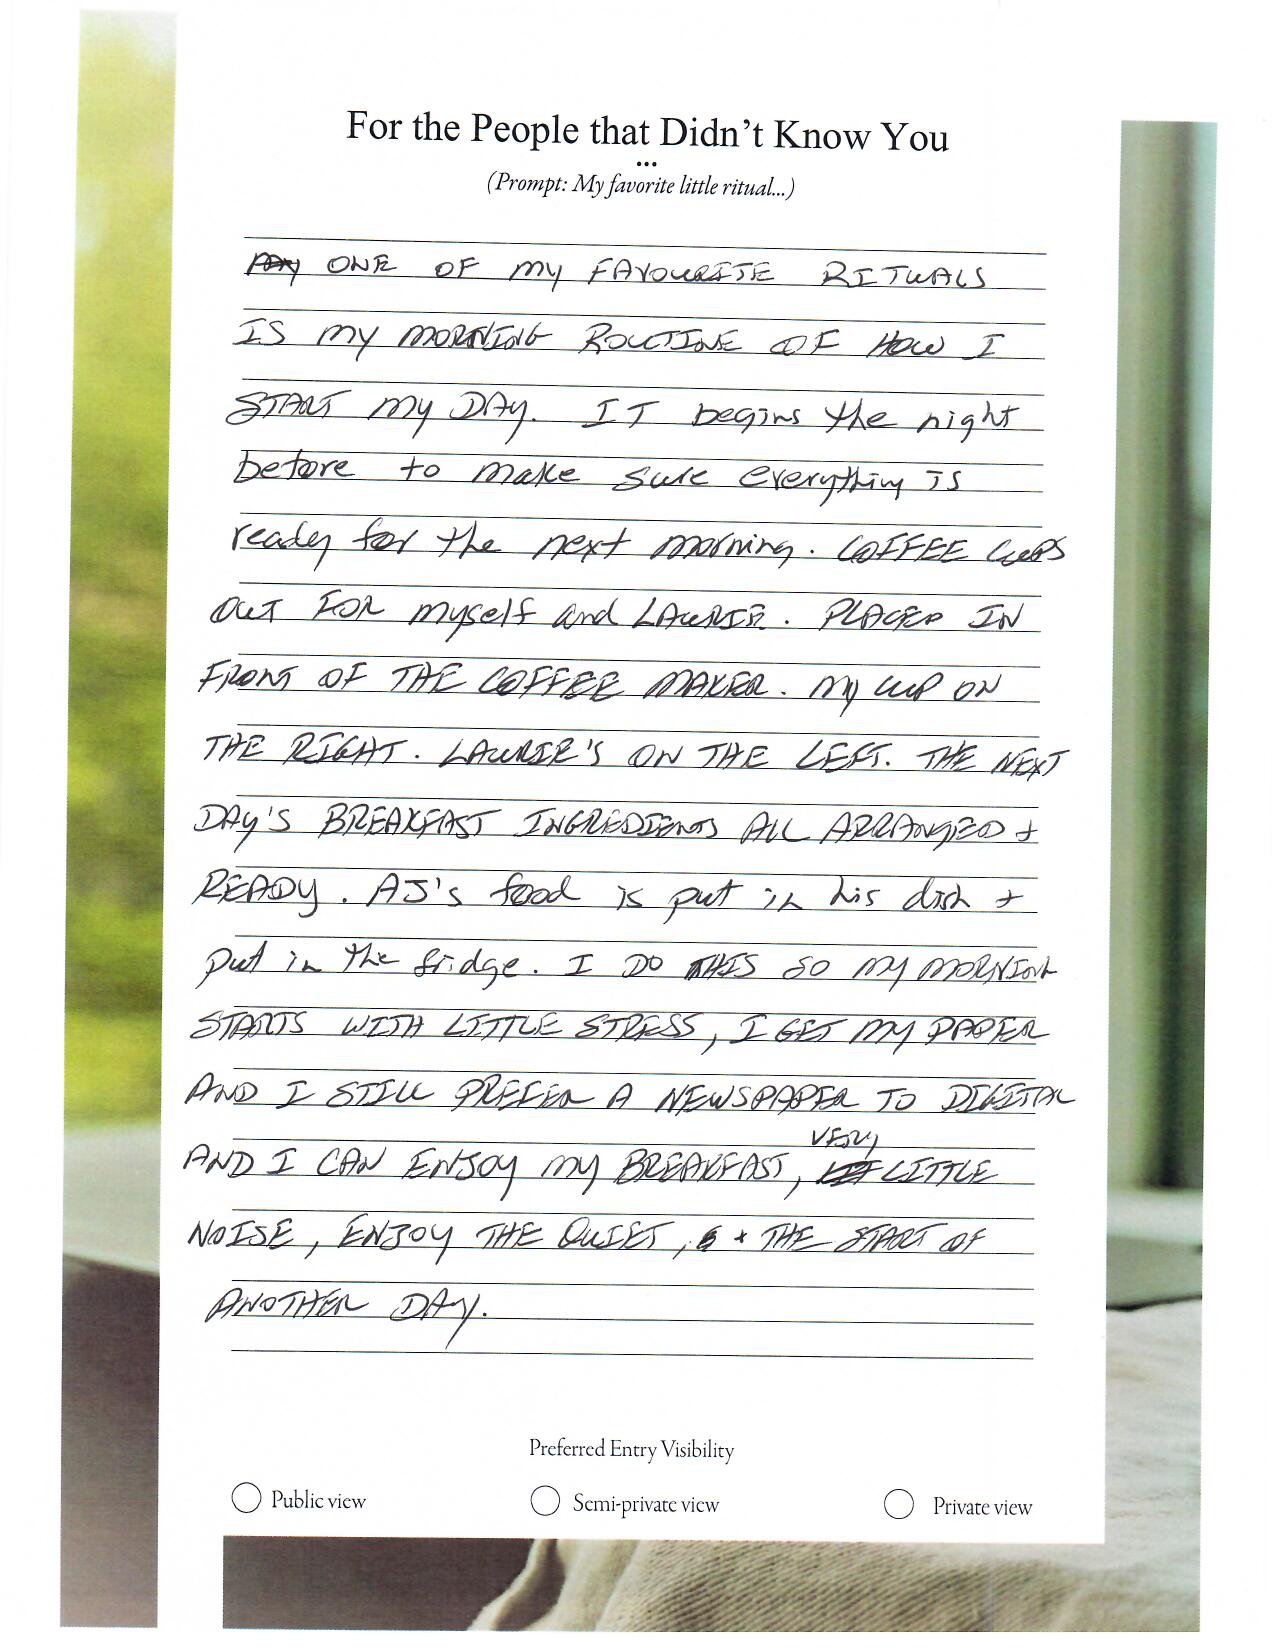 For the People that Didn't Know You
...
(Prompt: My favorite little ritual...)
ONE OF MY FAVOURITE RITUALS
IS MY MORNING ROUTINE OF HOW I
START MY DAY. IT begins the night
before to make sure everything is
ready for the next morning. COFFEE CUPS
OUT FOR myself and LAURIE. PLACED IN
FRONT OF THE COFFEE MAKER. MY CUP ON
THE RIGHT. LAURIE'S ON THE LEFT. THE NEXT
DAY'S BREAKFAST INGREDIENTS ALL ARRANGED +
READY. AJ's food is put in his dish +
put in the fridge. I DO THIS SO MY MORNING
STARTS WITH LITTLE STRESS, I GET MY PAPER
AND I STILL PREFER A NEWSPAPER TO DIGITAL
VERY
AND I CAN ENJOY MY BREAKFAST, LITTLE
NOISE, ENJOY THE QUIET, + THE START OF
ANOTHER DAY.
Preferred Entry Visibility
Public view Semi-private view Private view